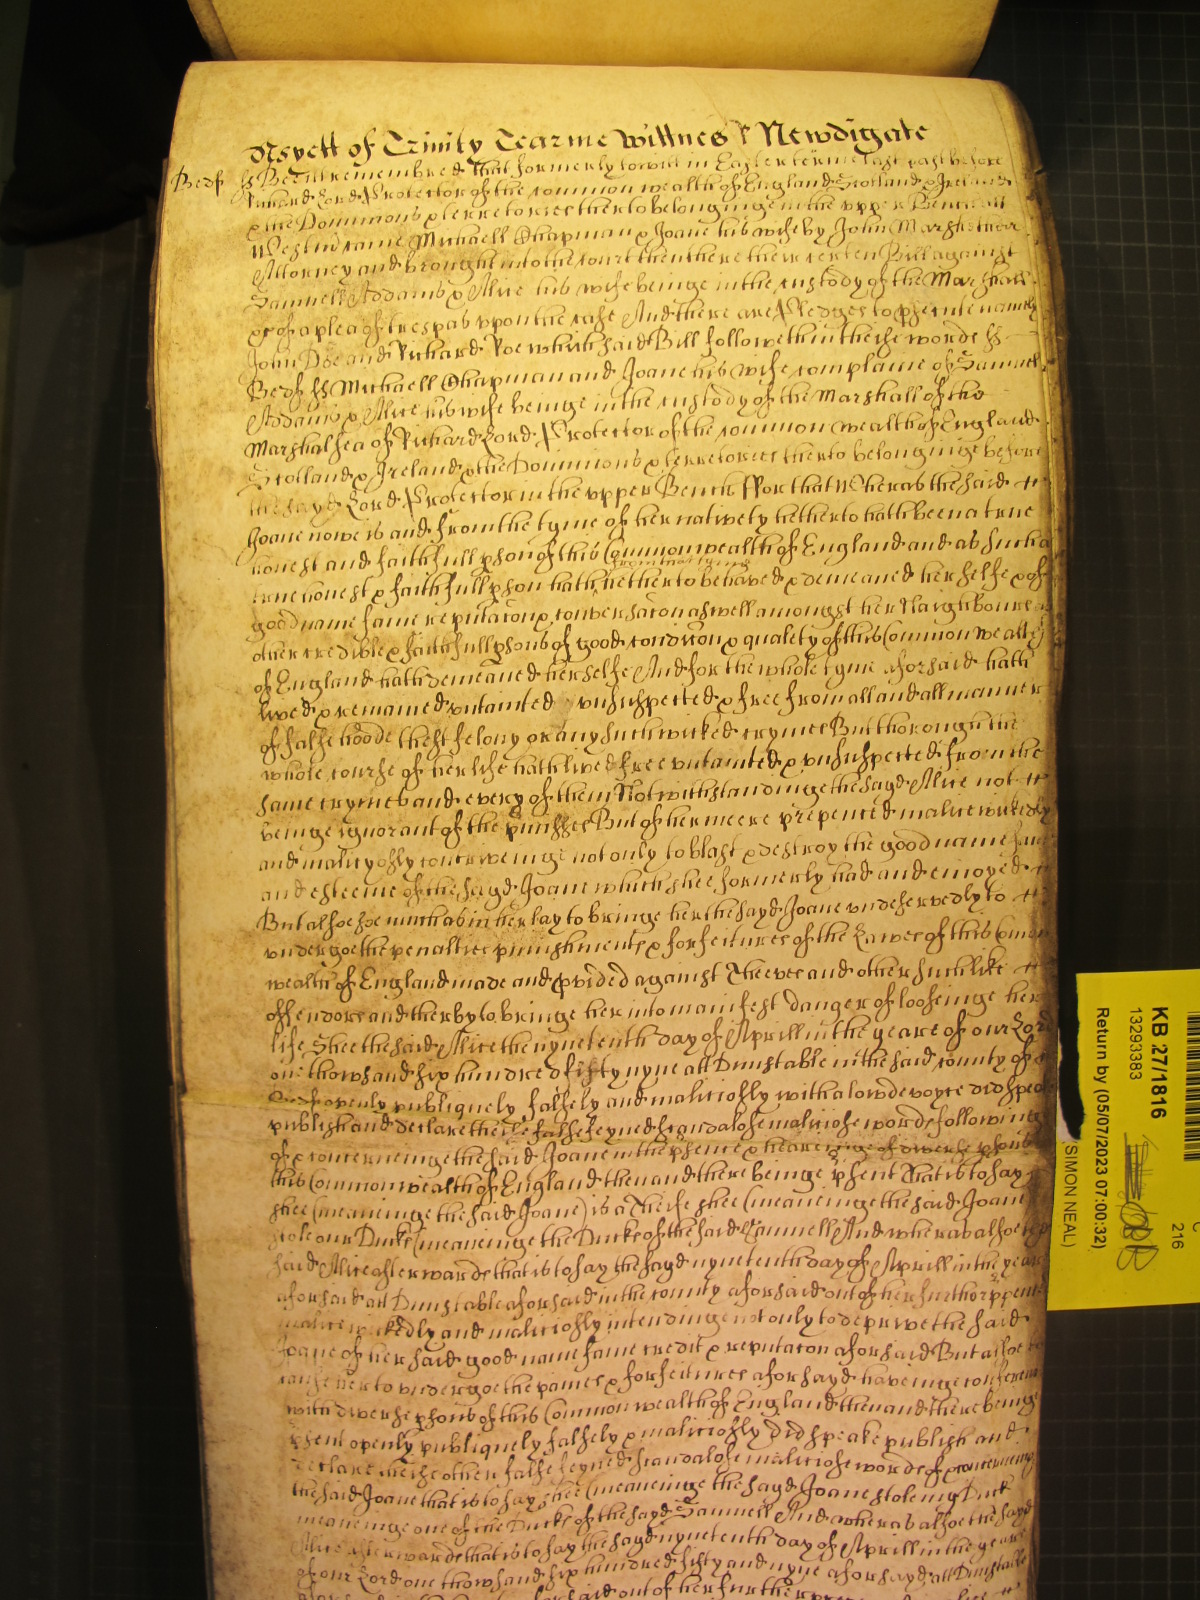 As yett of Trinity Tearme Wittnes R Newdigate
Bedf ss Be it remembred That formerly to witt in Easter terme last past before
Richard Lord Protector of the common wealth of England Scotland & Ireland
& the Dominions & terretories therto belonginge in the upper Bench att
Westm came Michaell Chapman & Joane his wife by John Marsh their
Attorney and brought into the court then there their certen Bill against
Samuell Addams & Alice his wife beinge in the custody of the Marshall
&c of a plea of trespas uppon the case And there are Pledges to psecute namely
John Doe and Richard Roe which said Bill followeth in theise words ss
Bedf ss Michaell Chapman and Joane his wife complaine of Samuel
Addams & Alice his wife beinge in the custody of the Marshall of the
Marshalsea of Richard Lord Protector of the common wealth of England
Scotland & Ireland & the Dominions & terretories therto belonginge before
the sayd Lord Protector in the upper Bench ffor that Wheras the said
Joane nowe is and from the tyme of her natively hetherto hath beene a true
honest and faithfull pson of this Common wealth of England and as such a
from that tyme
true honest & faithfull pson hath hetherto behaved & demeaned her selfe & of
good name fame reputacon & conversacon aswell amongst her Naighbours as
other credible & faithfull psons of good condicon & quality of this Common wealth
of England hath demeaned herselfe And for the whole tyme aforsaid hath
lived & remained untainted unsuspected & free from all and all manner
of falsehoode theft felony or any such wicked crymes But thorough the
whole course of her life hath lived free untainted & unsuspected from the
same crymes and every of them Notwithstandinge the sayd Alice not
beinge ignorant of the pmisses But of her meere prepenced malice wickedly
and malityosly contriveinge not only to blast & destroy the good name fame
and esteeme of the sayd Joane which shee formerly had and enioyed
But alsoe soe much as in her lay to bringe her the sayd Joane undeservedly to
undergoe the penalties punishments & forfeitures of the Lawes of this Comon
wealth of England made and pvided against Theeves and other such like
offendors and therby to bringe her into manifest danger of looseinge her
life Shee the said Alice the nynetenth day of Aprill in the yeare of our Lord
one thowsand six hundred fifty nyne att Dunstable in the said county of
Bedf openly publiquely falsely and malitiosly with a lowde voyce did speake
publish and declare theise false feyned scandalose malitiose words followinge
of & concerneinge the said Joane in the psence & heareinge of diverse psons
this Common wealth of England then and there beinge psent That is to say
shee (meaneinge the said Joane) is a Theife shee (meaneinge the said Joane
stole our Ducks (meaneinge the Ducks of the said Samuell And wheras alsoe the
said Alice afterwards that is to say the sayd nynetenth day of Aprill in the yeare
aforsaid att Dunstable aforsaid in the county aforsaid out of her further ppenced
malice wickedly and malitiosly intendinge not only to deprive the said
Joane of her said good name fame credit & reputacon aforsaid But alsoe to
cause her to undergoe the paines & forfeitures aforsayd haveinge conference
with diverse psons of this Common wealth of England then and there beinge
psent openly publiquely falsely & malitiosly did speake publish and
declare theise other false feyned scandalose malitiose words of & concerneinge
the said Joane that is to say shee (meaneinge the sayd Joane stole my Duck
meaneinge one of the Ducks of the sayd Samuell And wheras alsoe the sayd
Alice afterwards that is to say the sayd nynetenth day of Aprill in the yeare
of our Lord one thowsand six hundred fifty and nyne aforsayd att Dunstable
out of her further
KB 27/1816
13293383
Return by (05/07/2023 07:00:32)
(SIMON NEAL)
C
216